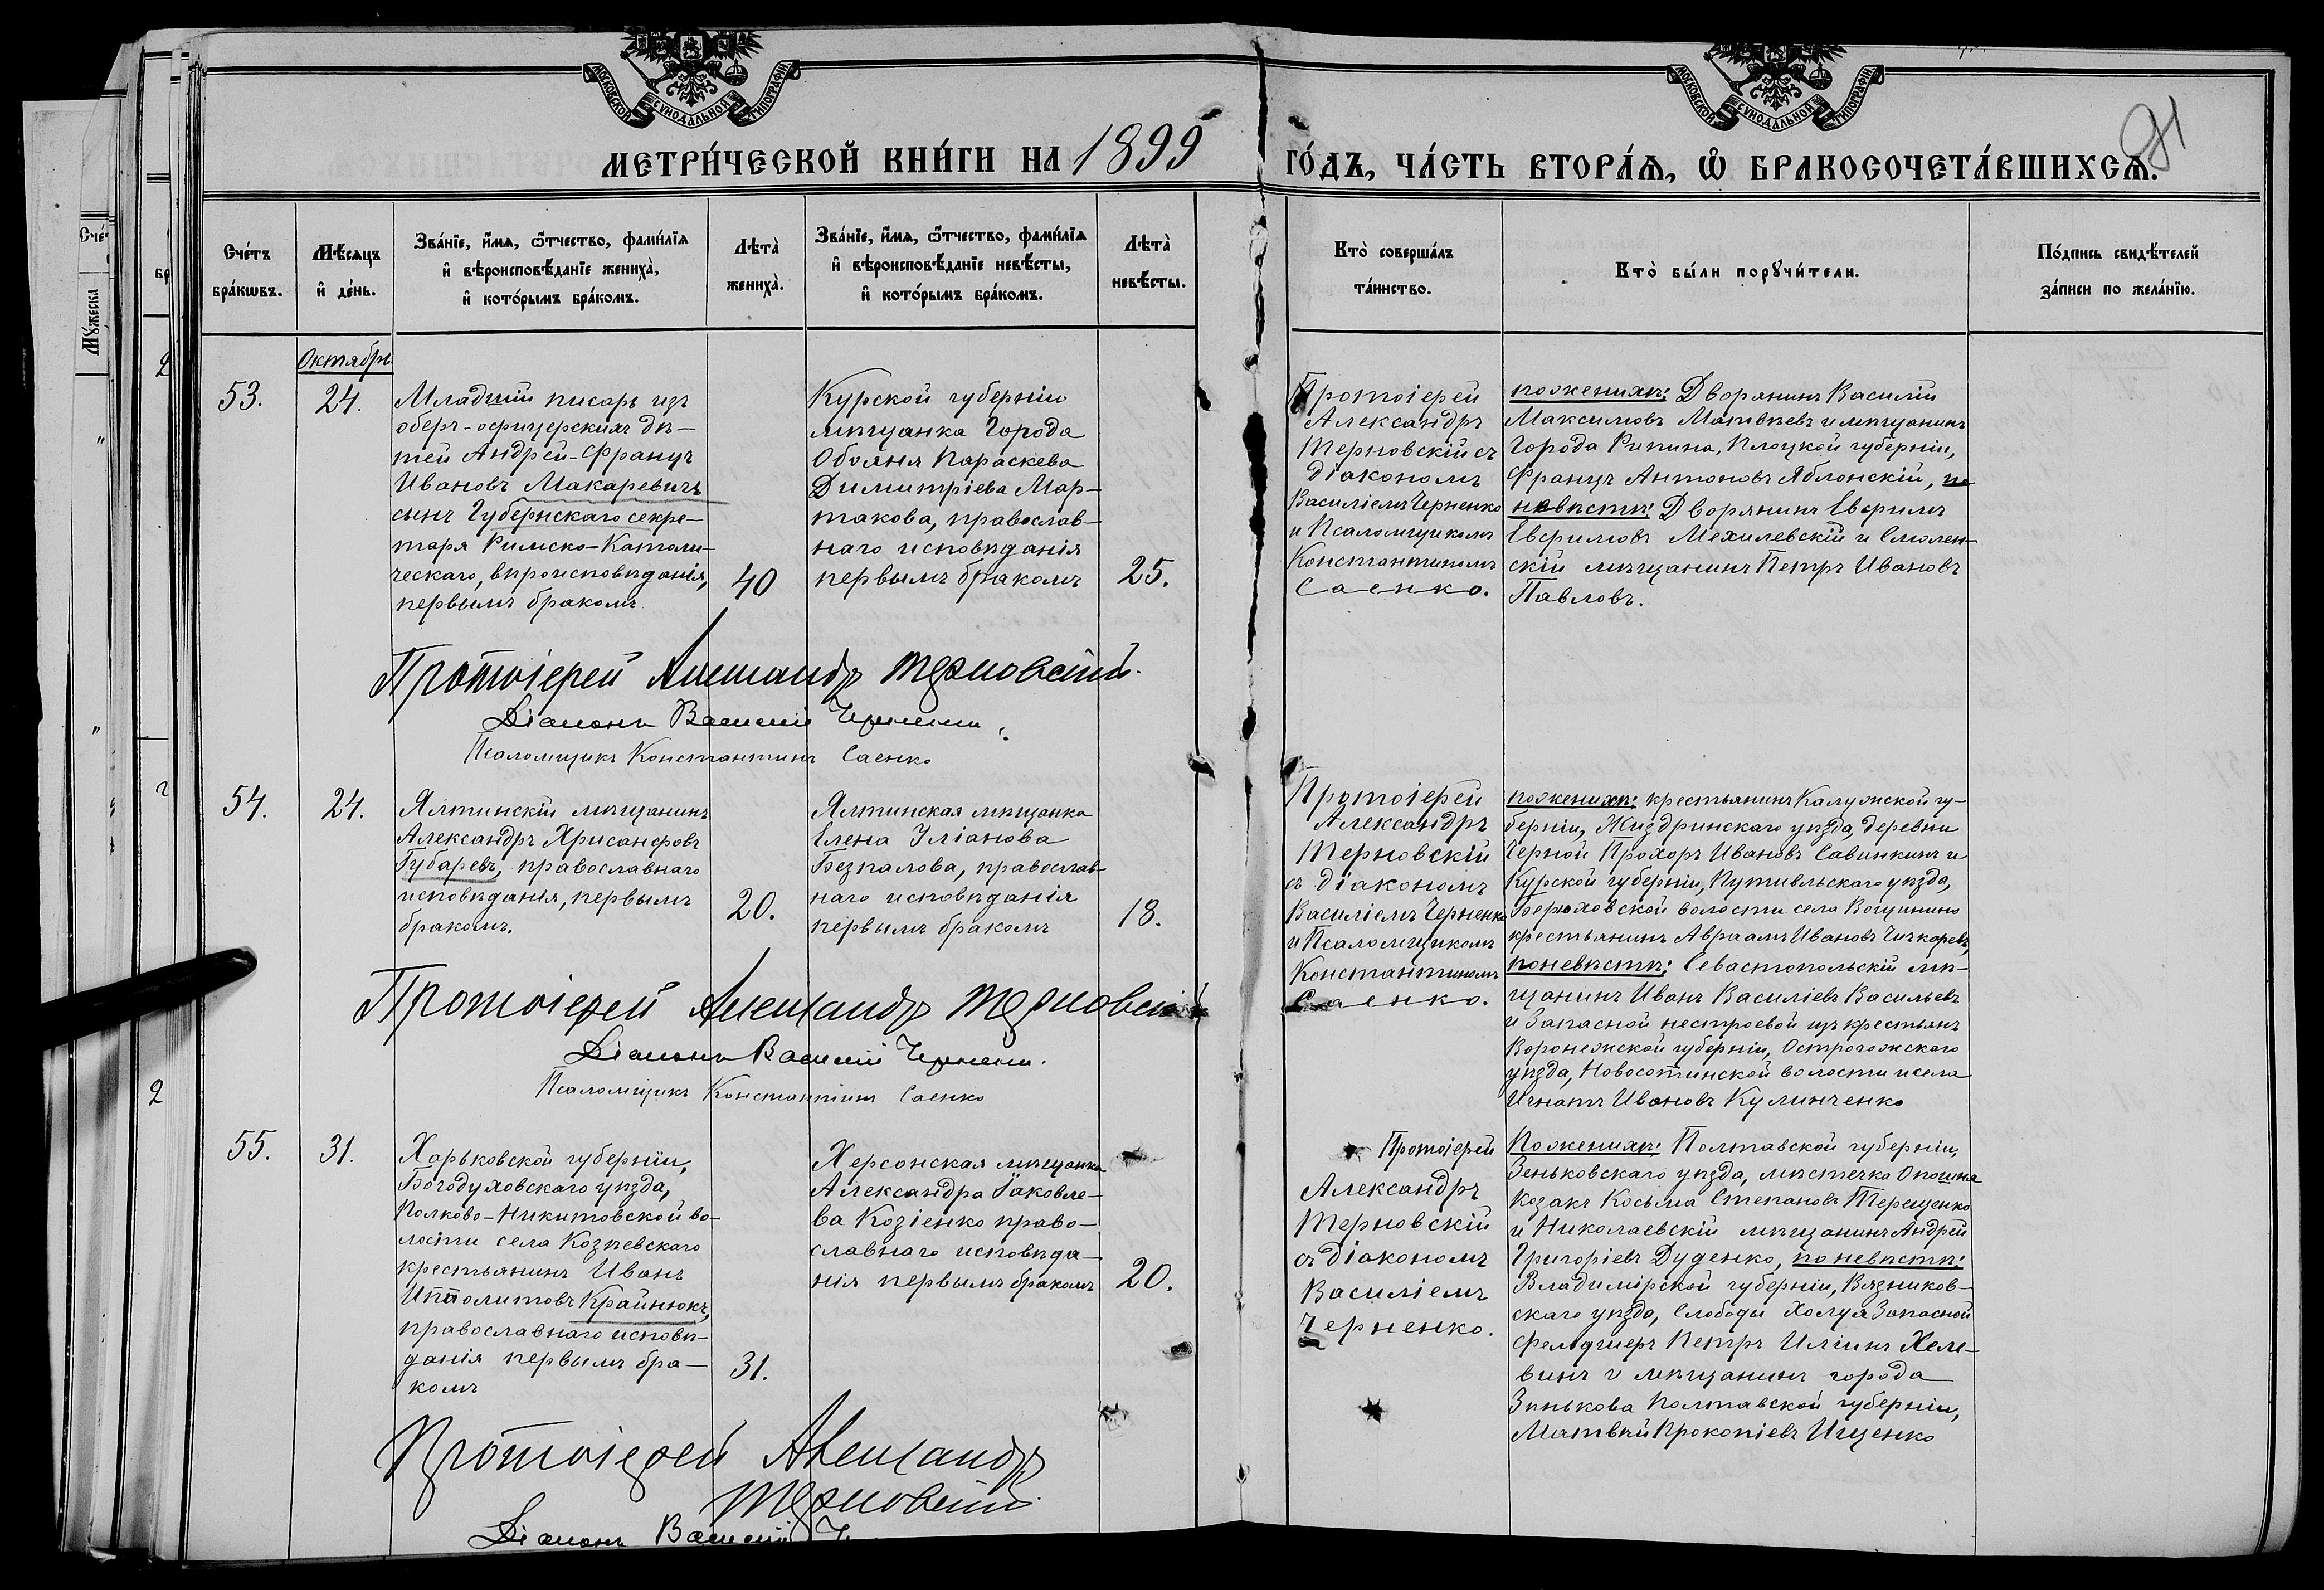 МОСКОВСКОЙ СѴНОДАЛЬНОЙ ТИПОГРАФІИ
МОСКОВСКОЙ СѴНОДАЛЬНОЙ ТИПОГРАФІИ
МЕТРИ́ЧЕСКОЙ КНИ́ГИ НА 1899 ГО́ДЪ, ЧА́СТЬ ВТОРА́Я, Ѡ҆ БРАКОСОЧЕТА́ВШИХСЯ.
91
Сче́тъ
бра́кѡвъ.
Мѣ́сяцъ
и҆ де́нь.
Зва́нїе, и҆́мя, ѻ҆́тчество, фами́лїя
и҆ вѣроисповѣ́данїе жениха̀,
и҆ кото́рымъ бра́комъ.
Лѣта̀
жениха̀.
Зва́нїе, и҆́мя, ѻ҆́тчество, фами́лїя
и҆ вѣроисповѣ́данїе невѣ́сты,
и҆ кото́рымъ бра́комъ.
Лѣта̀
невѣ́сты.
Кто̀ соверша́лъ
та́инство.
Кто̀ бы́ли порꙋчи́тели.
По́дпись свидѣ́телей
за́писи по жела́нїю.
Октябрь
53.
24.
Младшій писарь изъ
оберъ-офицерскихъ дѣ-
тей Андрей-Францъ
Ивановъ Макаревичъ
сынъ Губернскаго секре-
таря Римско-Католи-
ческаго, вѣроисповѣданія,
первымъ бракомъ.
40
Курской губерніи
мѣщанка Города
Обояня Параскева
Димитріева Мар-
такова, православ-
наго исповѣданія
первымъ бракомъ
25.
Протоіерей
Александръ
Терновскій съ
діакономъ
Василіемъ Черненко
и Псаломщикомъ
Константиномъ
Саенко.
по женихѣ: Дворянинъ Василій
Максимовъ Матвѣевъ и мѣщанинъ
Города Рипина, Плоцкой губерніи,
Францъ Антоновъ Яблонскій, по
невѣстѣ: Дворянинъ Ефримъ
Ефримовъ Мехилевскій и Смолен-
скій мѣщанинъ Петръ Ивановъ
Павловъ.
Протоіерей Александръ Терновскій.
Діаконъ Василій Черненко
Псаломщикъ Константинъ Саенко
54.
24.
Ялтинскій мѣщанинъ
Александръ Хрисанфовъ
Губаревъ, православнаго
исповѣданія, первымъ
бракомъ.
20.
Ялтинская мѣщанка
Елена Уліанова
Безпалова, православ-
наго исповѣданія
первымъ бракомъ
18.
Протоіерей
Александръ
Терновскій
съ діакономъ
Василіемъ Черненко
и Псаломщикомъ
Константиномъ
Саенко.
по женихѣ: крестьянинъ Калужской гу-
берніи, Жиздринскаго уѣзда, деревни
Черной Прохоръ Ивановъ Савинкинъ и
Курской губерніи, Путивльскаго уѣзда,
Берюховской волости села Воцинино
крестьянинъ Авраамъ Ивановъ Чичкаревъ,
по невѣстѣ: Севастопольскій мѣ-
щанинъ Иванъ Василіевъ Васильевъ
и Запасной нестроевой изъ крестьянъ
Воронежской губерніи, Острогожскаго
уѣзда, Новосотинской волости и села
Игнатъ Ивановъ Кулинченко
Протоіерей Александръ Терновскій
Діаконъ Василій Черненко.
Псаломщикъ Константинъ Саенко
55.
31.
Харьковской губерніи,
Богодуховскаго уѣзда,
Полково-Никитовской во-
лости села Козѣевскаго
крестьянинъ Иванъ
Ипполитовъ Крайнюкъ,
православнаго исповѣ-
данія первымъ бра-
комъ
31.
Херсонская мѣщанка
Александра Іаковле-
ва Козіенко право-
славнаго исповѣда-
нія первымъ бракомъ
20.
Протоіерей
Александръ
Терновскій
съ діакономъ
Василіемъ
Черненко.
По женихѣ: Полтавской губерніи,
Зеньковскаго уѣзда, мѣстечка Опошна
козакъ Косьма Степановъ Терещенко
и Николаевскій мѣщанинъ Андрей
Григоріевъ Дуденко, по невѣстѣ:
Владимірской губерніи, Вязников-
скаго уѣзда, Слободы Холуя Запасной
фельдшеръ Петръ Илiинъ Хеле-
винъ и мѣщанинъ города
Зѣнькова Полтавской губерніи,
Матвѣй Прокопіевъ Ищенко
Протоіерей Александръ
Терновскій.
Діаконъ Василій Ч